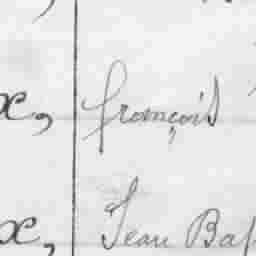 x, françois
x, Jean Bap